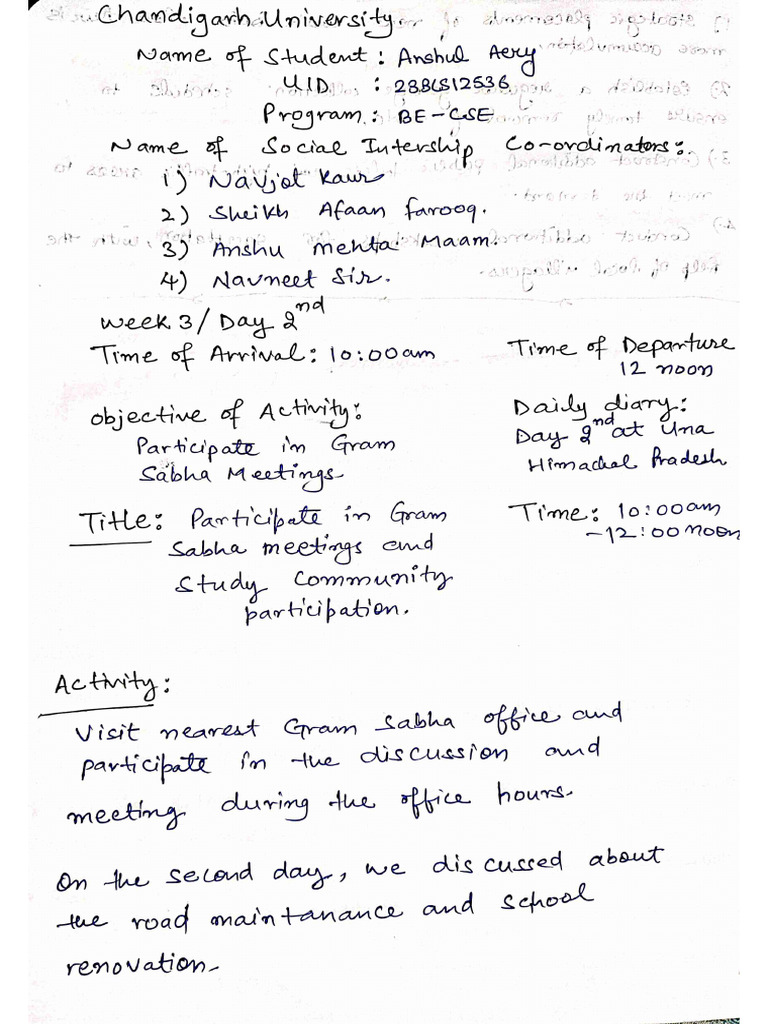 Chandigarh University
Name of Student : Anshul Aery
UID : 28BCS12536
Program : BE-CSE
Name of Social Intership Co-ordinators :
1) Navjot Kaur
2) Sheikh Afaan farooq.
3) Anshu mehta Maam.
4) Navneet Sir.
Week 3 / Day 2nd
Time of Arrival : 10:00am
Time of Departure
12 noon
Objective of Activity :
Participate in Gram
Sabha Meetings
Daily diary :
Day 2nd at Una
Himachal Pradesh
Title : Participate in Gram
Sabha meetings and
Study Community
participation.
Time : 10:00am
- 12:00 noon
Activity :
Visit nearest Gram Sabha office and
participate in the discussion and
meeting during the office hours.
On the second day, we discussed about
the road maintanance and school
renovation.